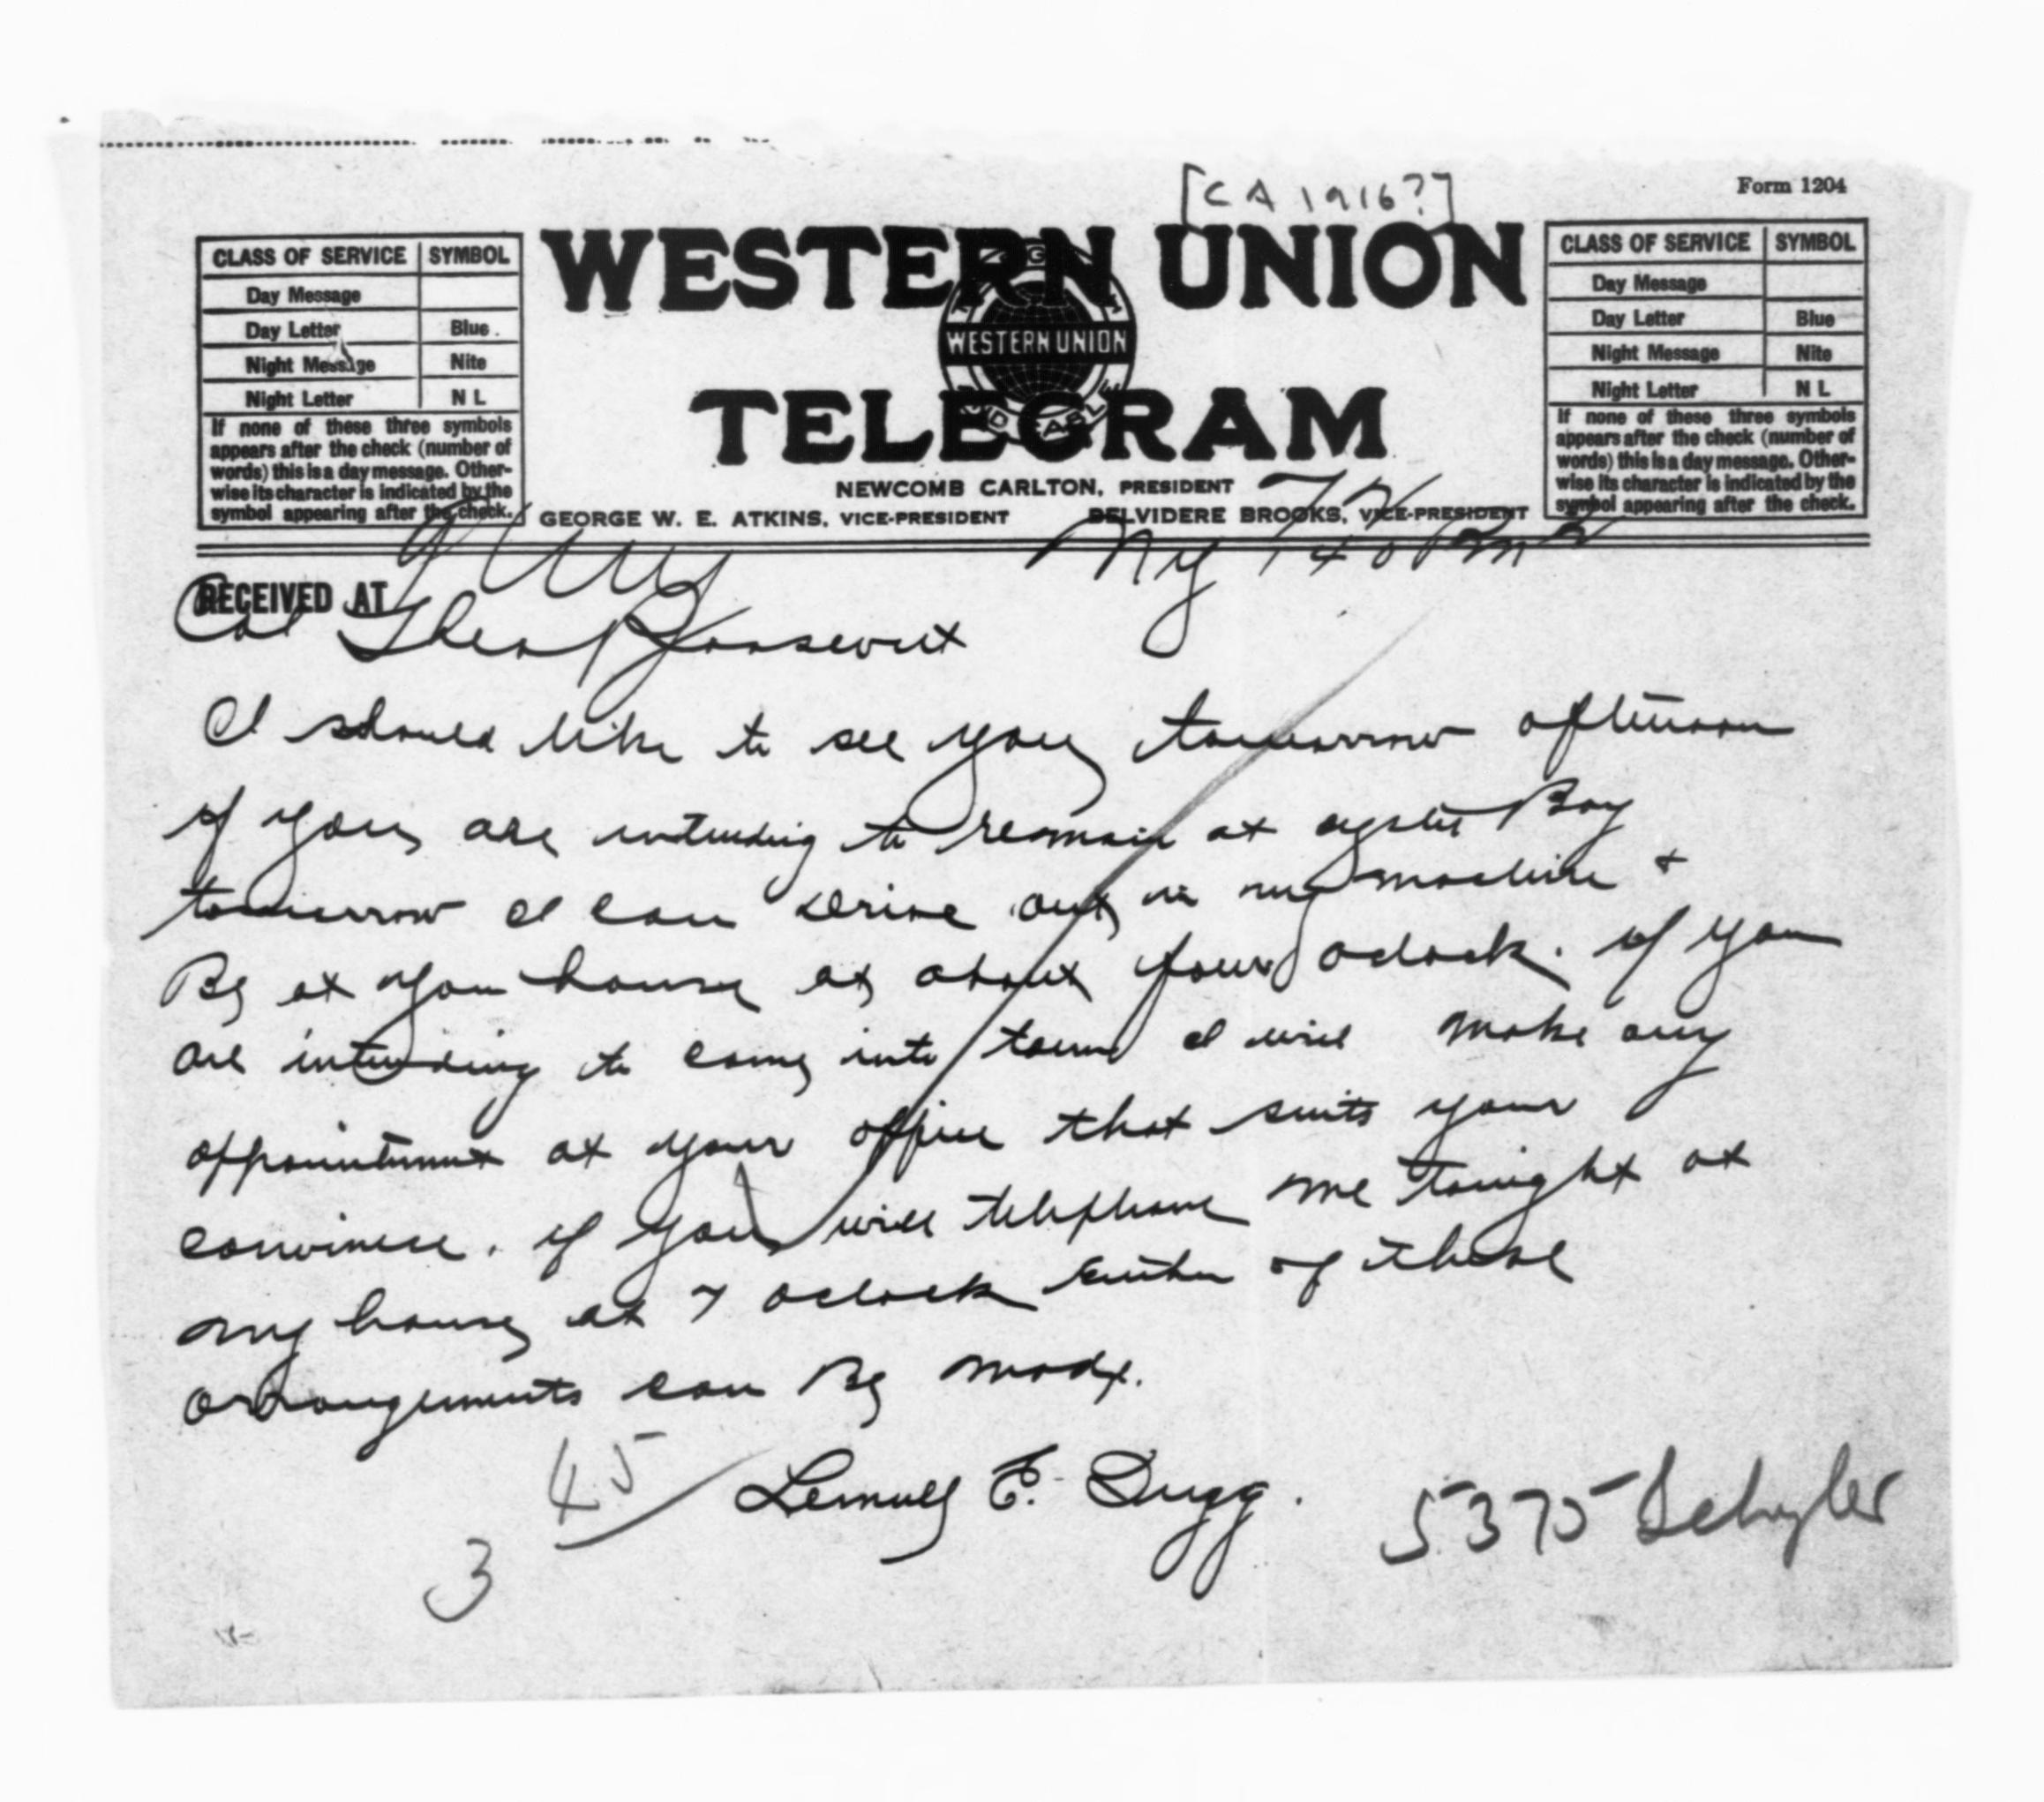 [CA 1916?]
Form 1204
CLASS OF SERVICE SYMBOL
Day Message
Day Letter Blue
Night Message Nite
Night Letter N L
If none of these three symbols
appears after the check (number of
words) this is a day message. Other-
wise its character is indicated by the
symbol appearing after the check.
WESTERN UNION
WESTERN UNION
TELEGRAM
NEWCOMB CARLTON, PRESIDENT
GEORGE W. E. ATKINS, VICE-PRESIDENT BELVIDERE BROOKS, VICE-PRESIDENT
CLASS OF SERVICE SYMBOL
Day Message
Day Letter Blue
Night Message Nite
Night Letter N L
If none of these three symbols
appears after the check (number of
words) this is a day message. Other-
wise its character is indicated by the
symbol appearing after the check.
RECEIVED AT
Ny
Col Theo Roosevelt
I should like to see you tomorrow afternoon
if you are intending to remain at oyster Bay
tomorrow I can drive out in my machine &
Be at your house at about four oclock. if you
are intending to come into town I will make any
appointment at your office that suits your
convinece. if you will telephone me tonight at
my house at 7 oclock Either of these
arrangements can Be made.
45 Lemuel E. Quigg. 5375 Schyler
3